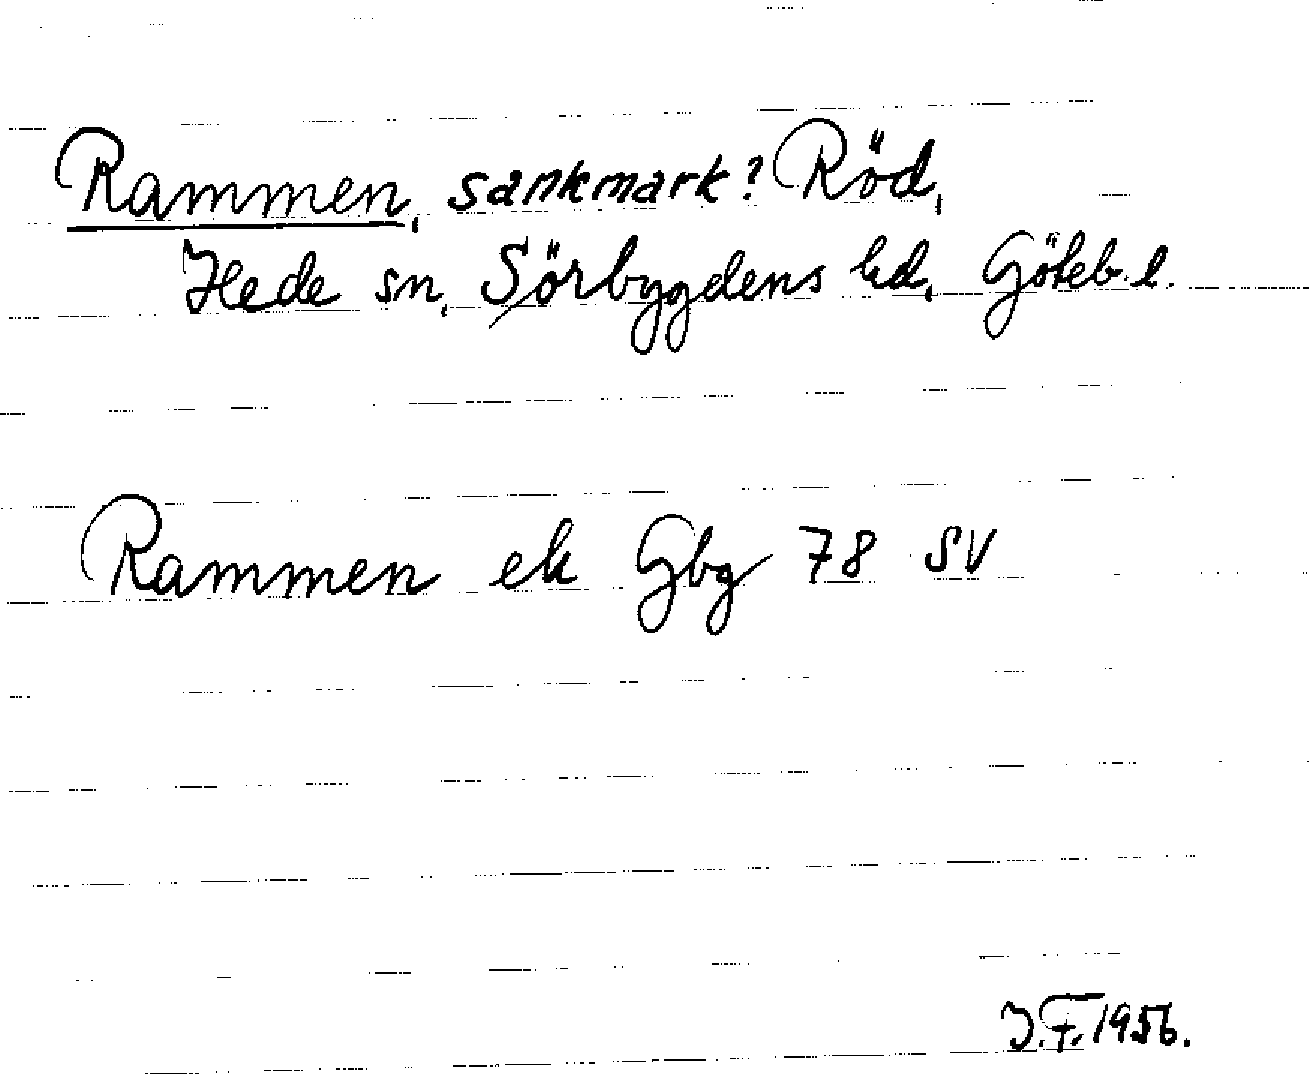 Rammen, sankmark? Röd,
Hede sn, Sörbygdens hd, Göteb. l.
Rammen ek Gbg 78 SV
J.F. 1956.